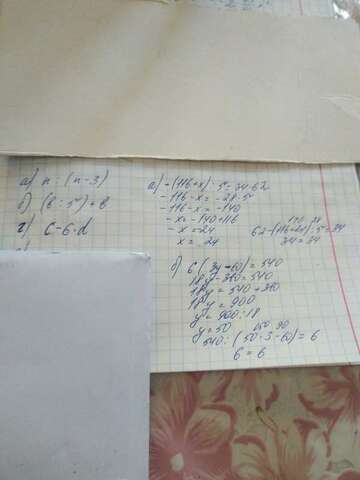 а) n : (n - 3)
б) (в : 5) + в
г) с - 6 · d
а) -(116+x) : 5 = 34-62
-116 - x = -28 · 5
-116 - x = -140
- x = -140 + 116
- x = -24
x = 24
62 - (116+24) : 5 = 34
34 = 34
б) 6 (3y - 60) = 540
18y - 360 = 540
18y = 540 + 360
18y = 900
y = 900 : 18
y = 50
540 : (50 · 3 - 60) = 6
6 = 6